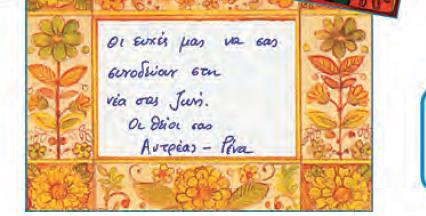 Οι ευχές μας να σας
συνοδεύουν στη
νέα σας ζωή.
Οι θείοι σας
Αντρέας - Ρένα